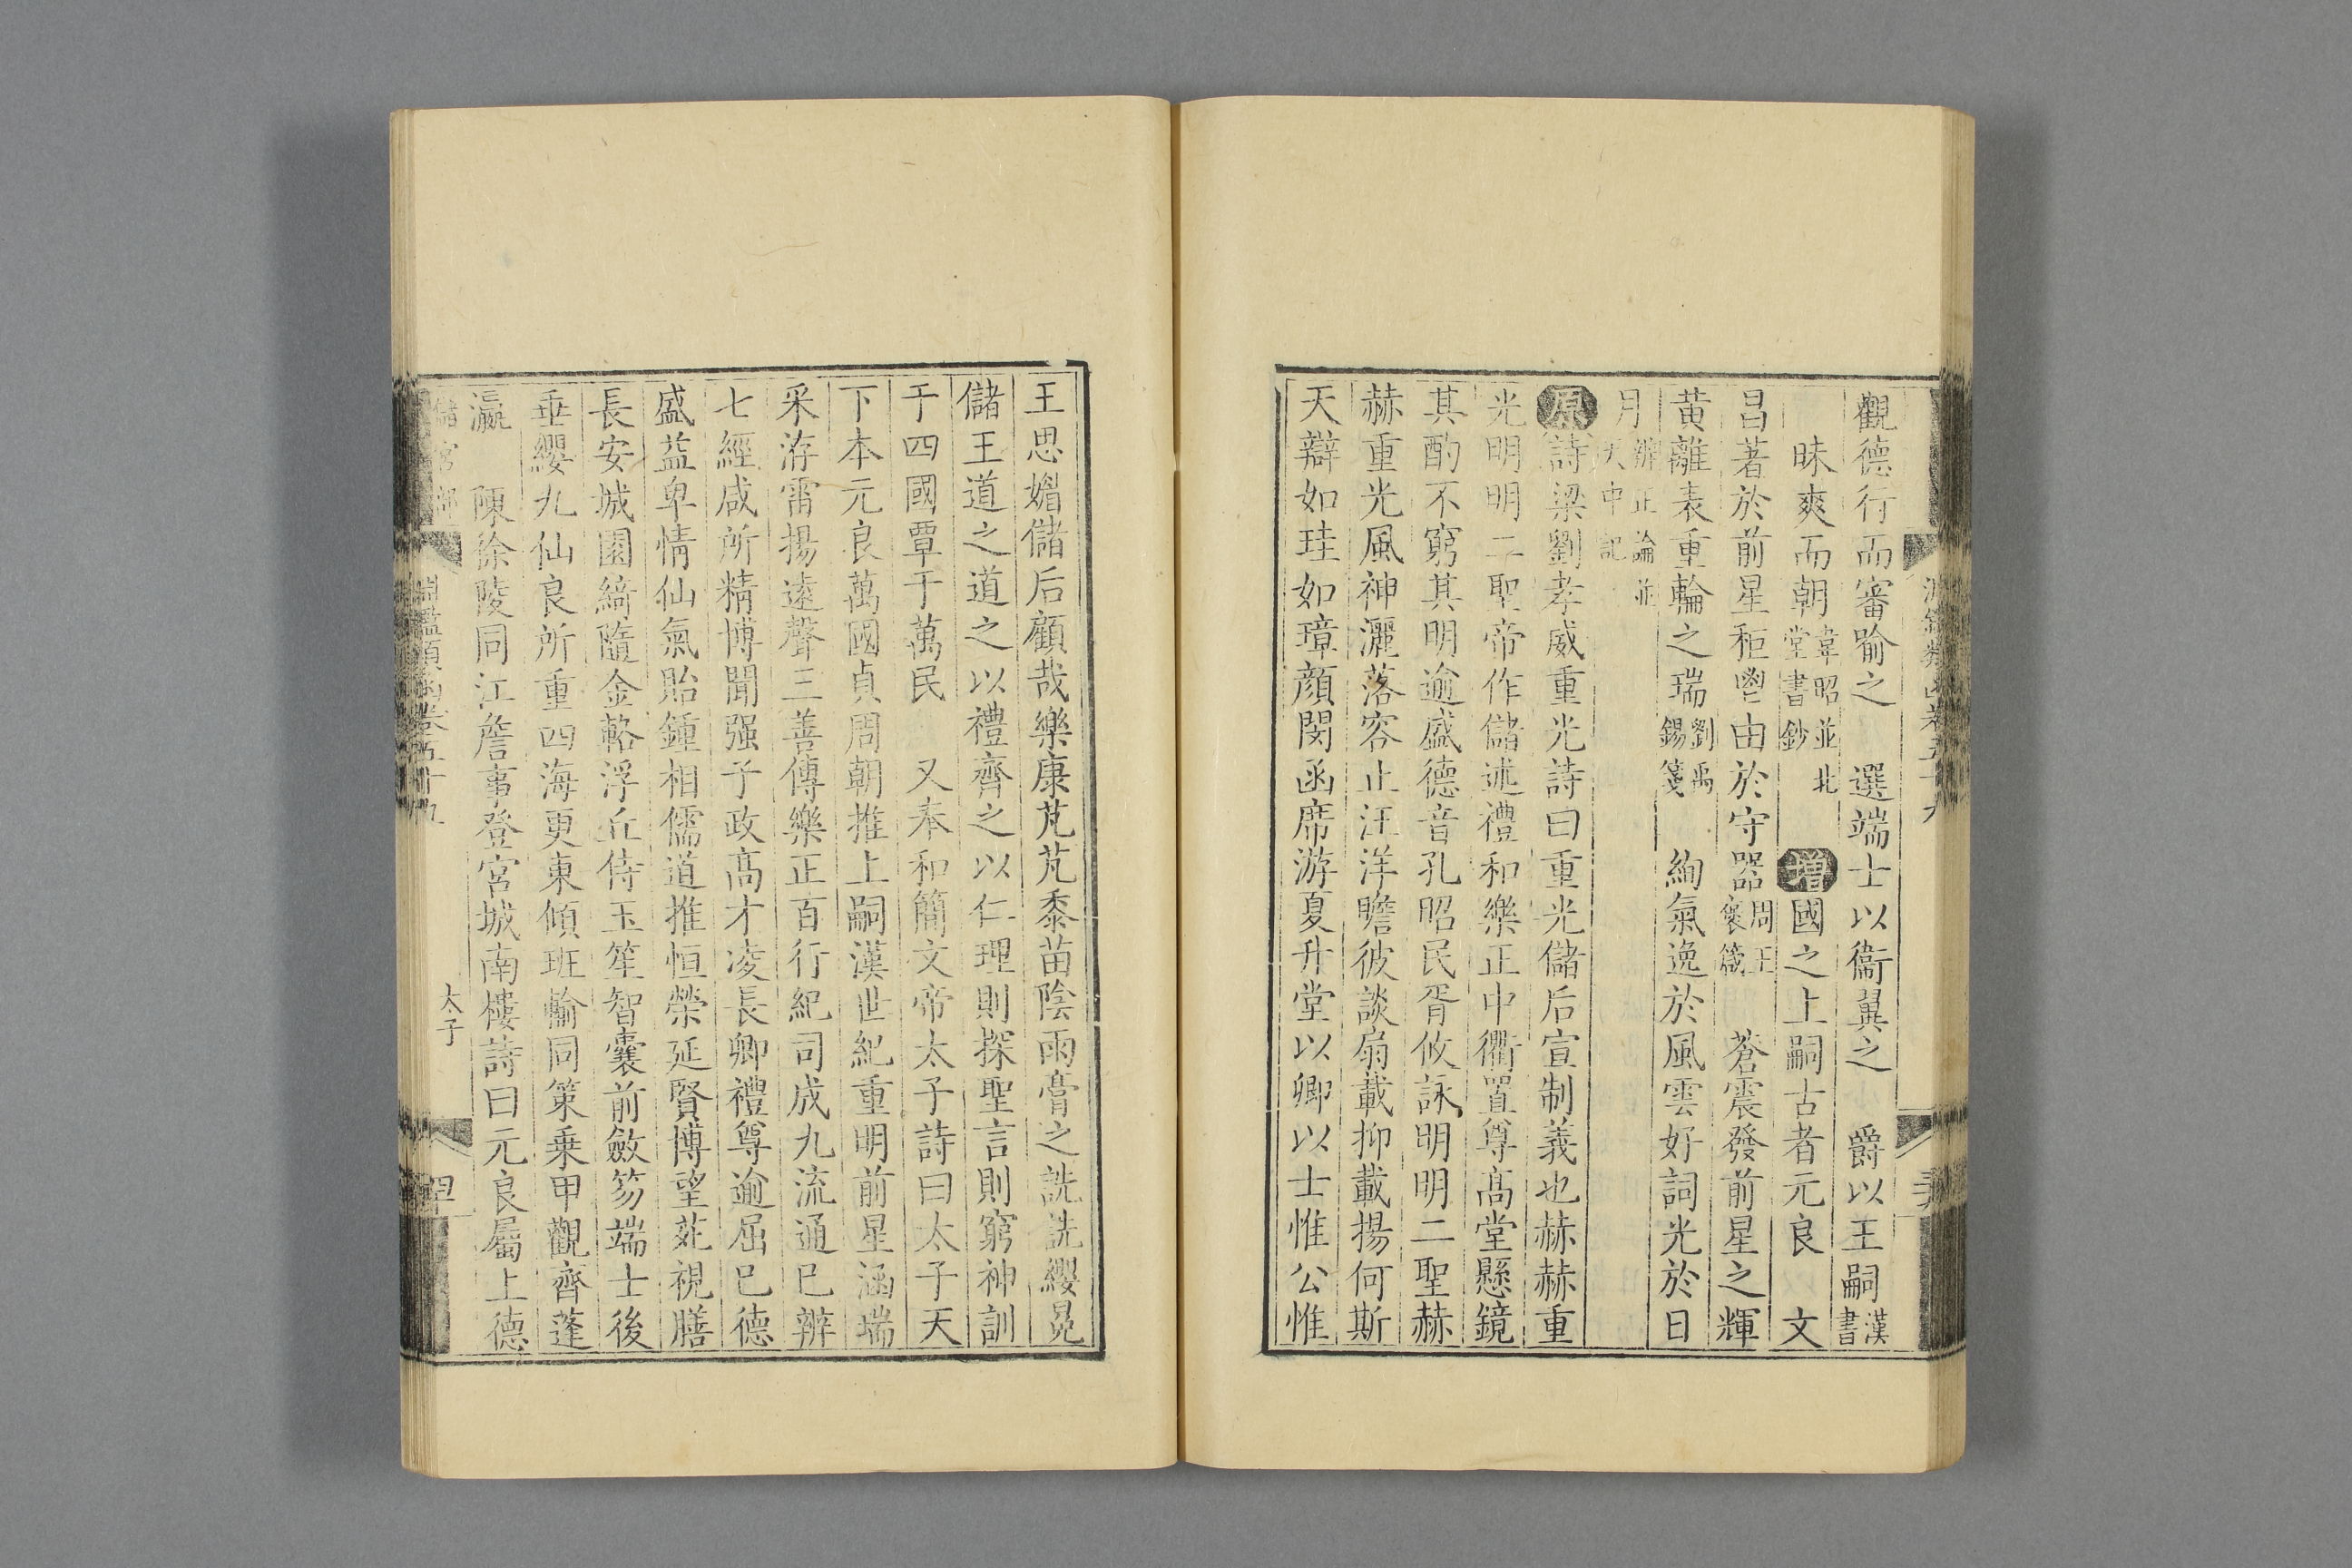 觀德行而審喻之　選端士以衞翼之　爵以王嗣漢書
昧爽而朝韋昭並北堂書鈔　增國之上嗣古者元良　文
昌著於前星秬鬯由於守器周王襃箴　蒼震發前星之輝
黃離表重輪之瑞劉禹錫箋　絢氣逸於風雲好詞光於日
月辨正論並天中記
原詩梁劉孝威重光詩曰重光儲后宣制義也赫赫重
光明明二聖帝作儲述禮和樂正中衢置尊高堂懸鏡
其酌不窮其明逾盛德音孔昭民胥攸詠明明二聖赫
赫重光風神灑落容止汪洋瞻彼談扇載抑載揚何斯
天辯如珪如璋顏閔函席游夏升堂以卿以士惟公惟
王思媚儲后顧哉樂康芃芃黍苗陰雨膏之詵詵纓冕
儲王道之道之以禮齊之以仁理則探聖言則窮神訓
于四國覃于萬民　又奉和簡文帝太子詩曰太子天
下本元良萬國貞周朝推上嗣漢世紀重明前星涵瑞
采洊雷揚遠聲三善傅樂正百行紀司成九流通巳辨
七經咸所精博聞强子政高才凌長卿禮尊逾屈巳德
盛益卑情仙氣貽鍾相儒道推恒榮延賢博望苑視膳
長安城園綺隨金輅浮丘侍玉笙智囊前斂笏端士後
垂纓九仙良所重四海更東傾班輸同策乘甲觀齊蓬
瀛　陳徐陵同江詹事登宮城南樓詩曰元良屬上德
儲宮部
淵鑑類函卷五十九
太子